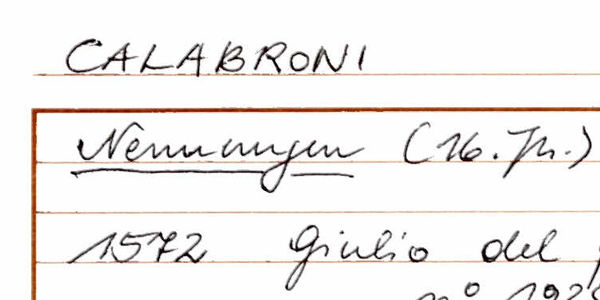 CALABRONI
Nennungen (16. Jh.)
1572 Giulio del
n° 192